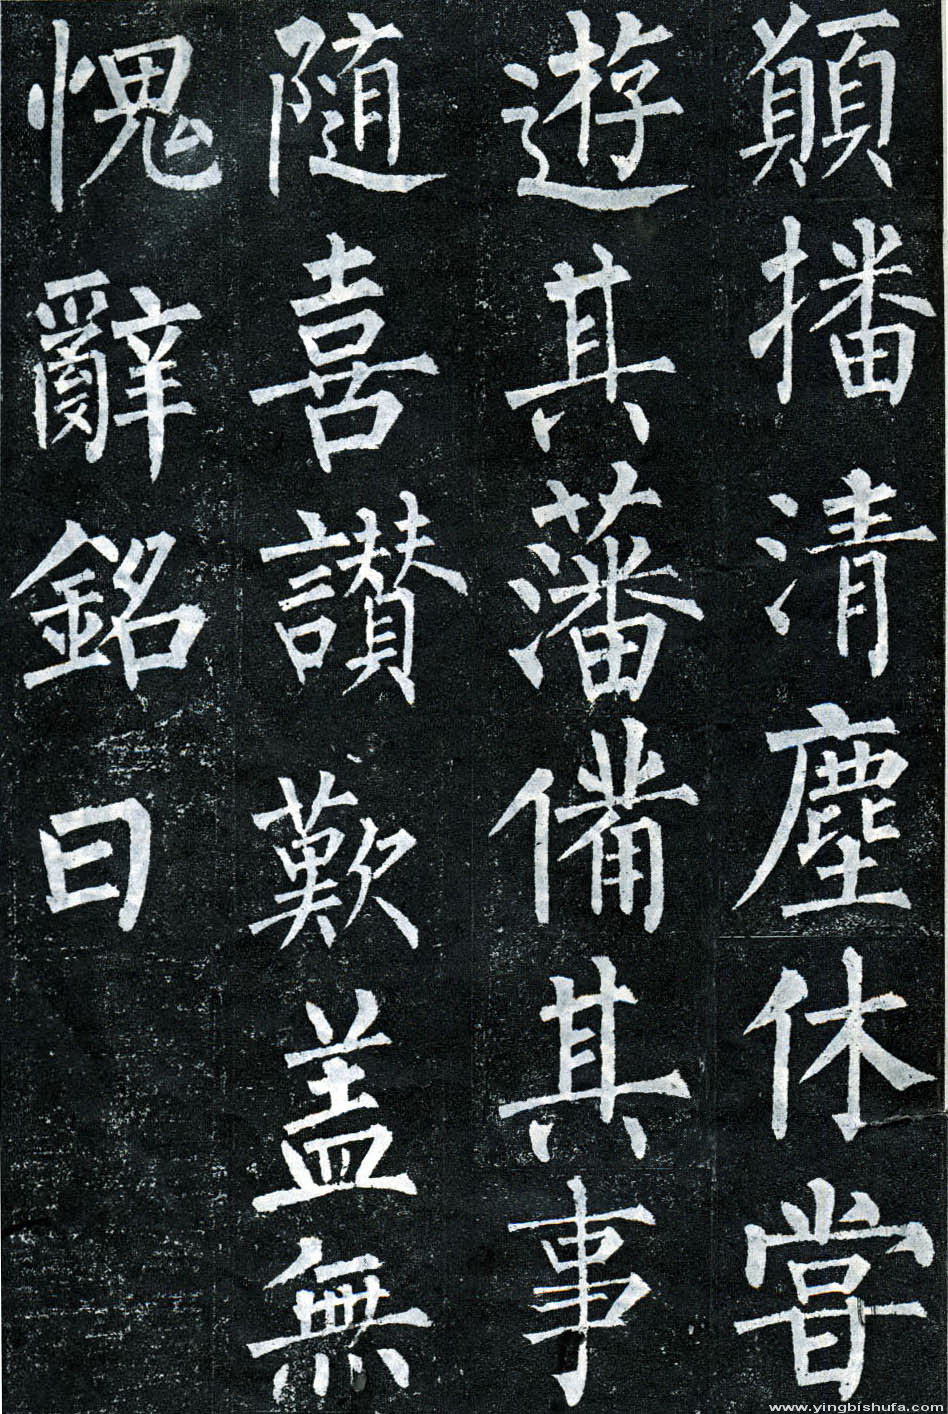 顛播清塵休嘗
遊其藩備其事
隨喜讃歎盖無
愧辭銘曰
www.yingbishufa.com